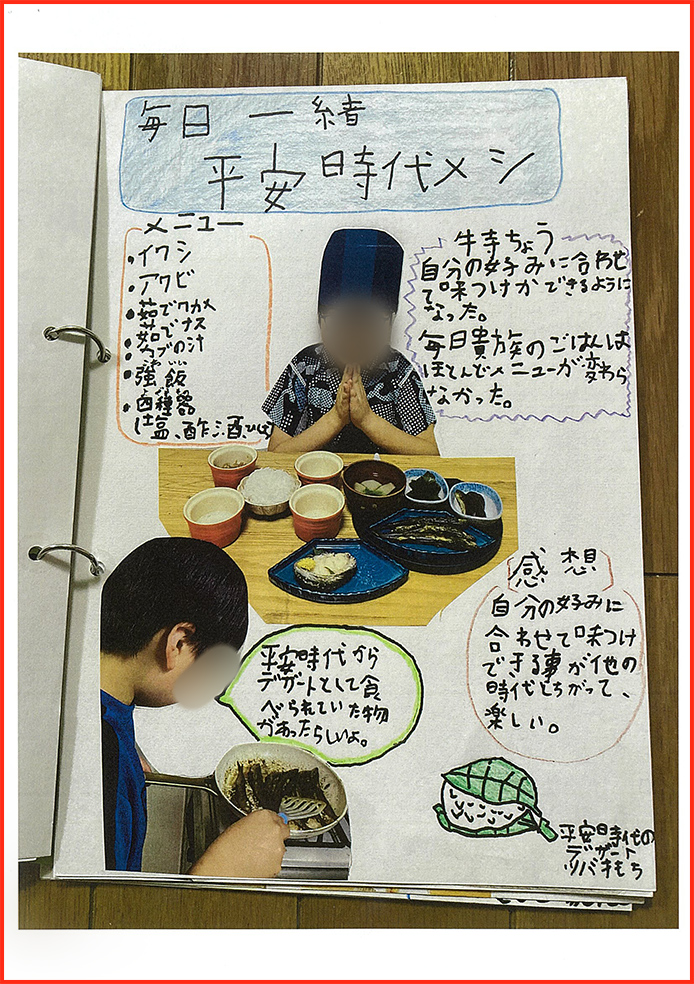 毎日 一緒
平安時代メシ
メニュー
・イワシ
・アワビ
・茹でワカメ
・茹でナス
・カブの汁
・強飯
・四種器
(塩、酢、酒、ひしお)
特ちょう
自分の好みに合わせ
て味つけができるように
なった。
毎日貴族のごはんは
ほとんどメニューが変わら
なかった。
感想
自分の好みに
合わせて味つけ
できる事が他の
時代とちがって、
楽しい。
平安時代から
デザートとして食
べられていた物
があったらしいよ。
平安時代の
デザート
ツバキもち